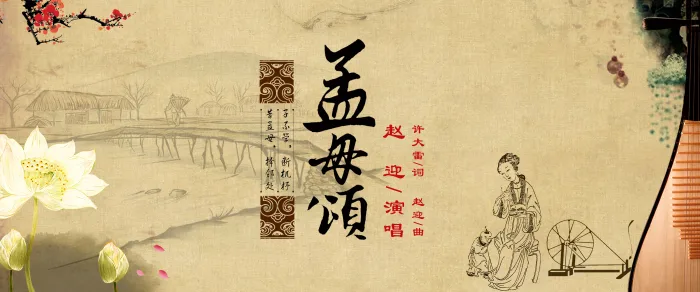 孟母頌
许大雷/词 赵迎/曲
赵迎/演唱
昔孟母，择邻处
子不学，断机杼